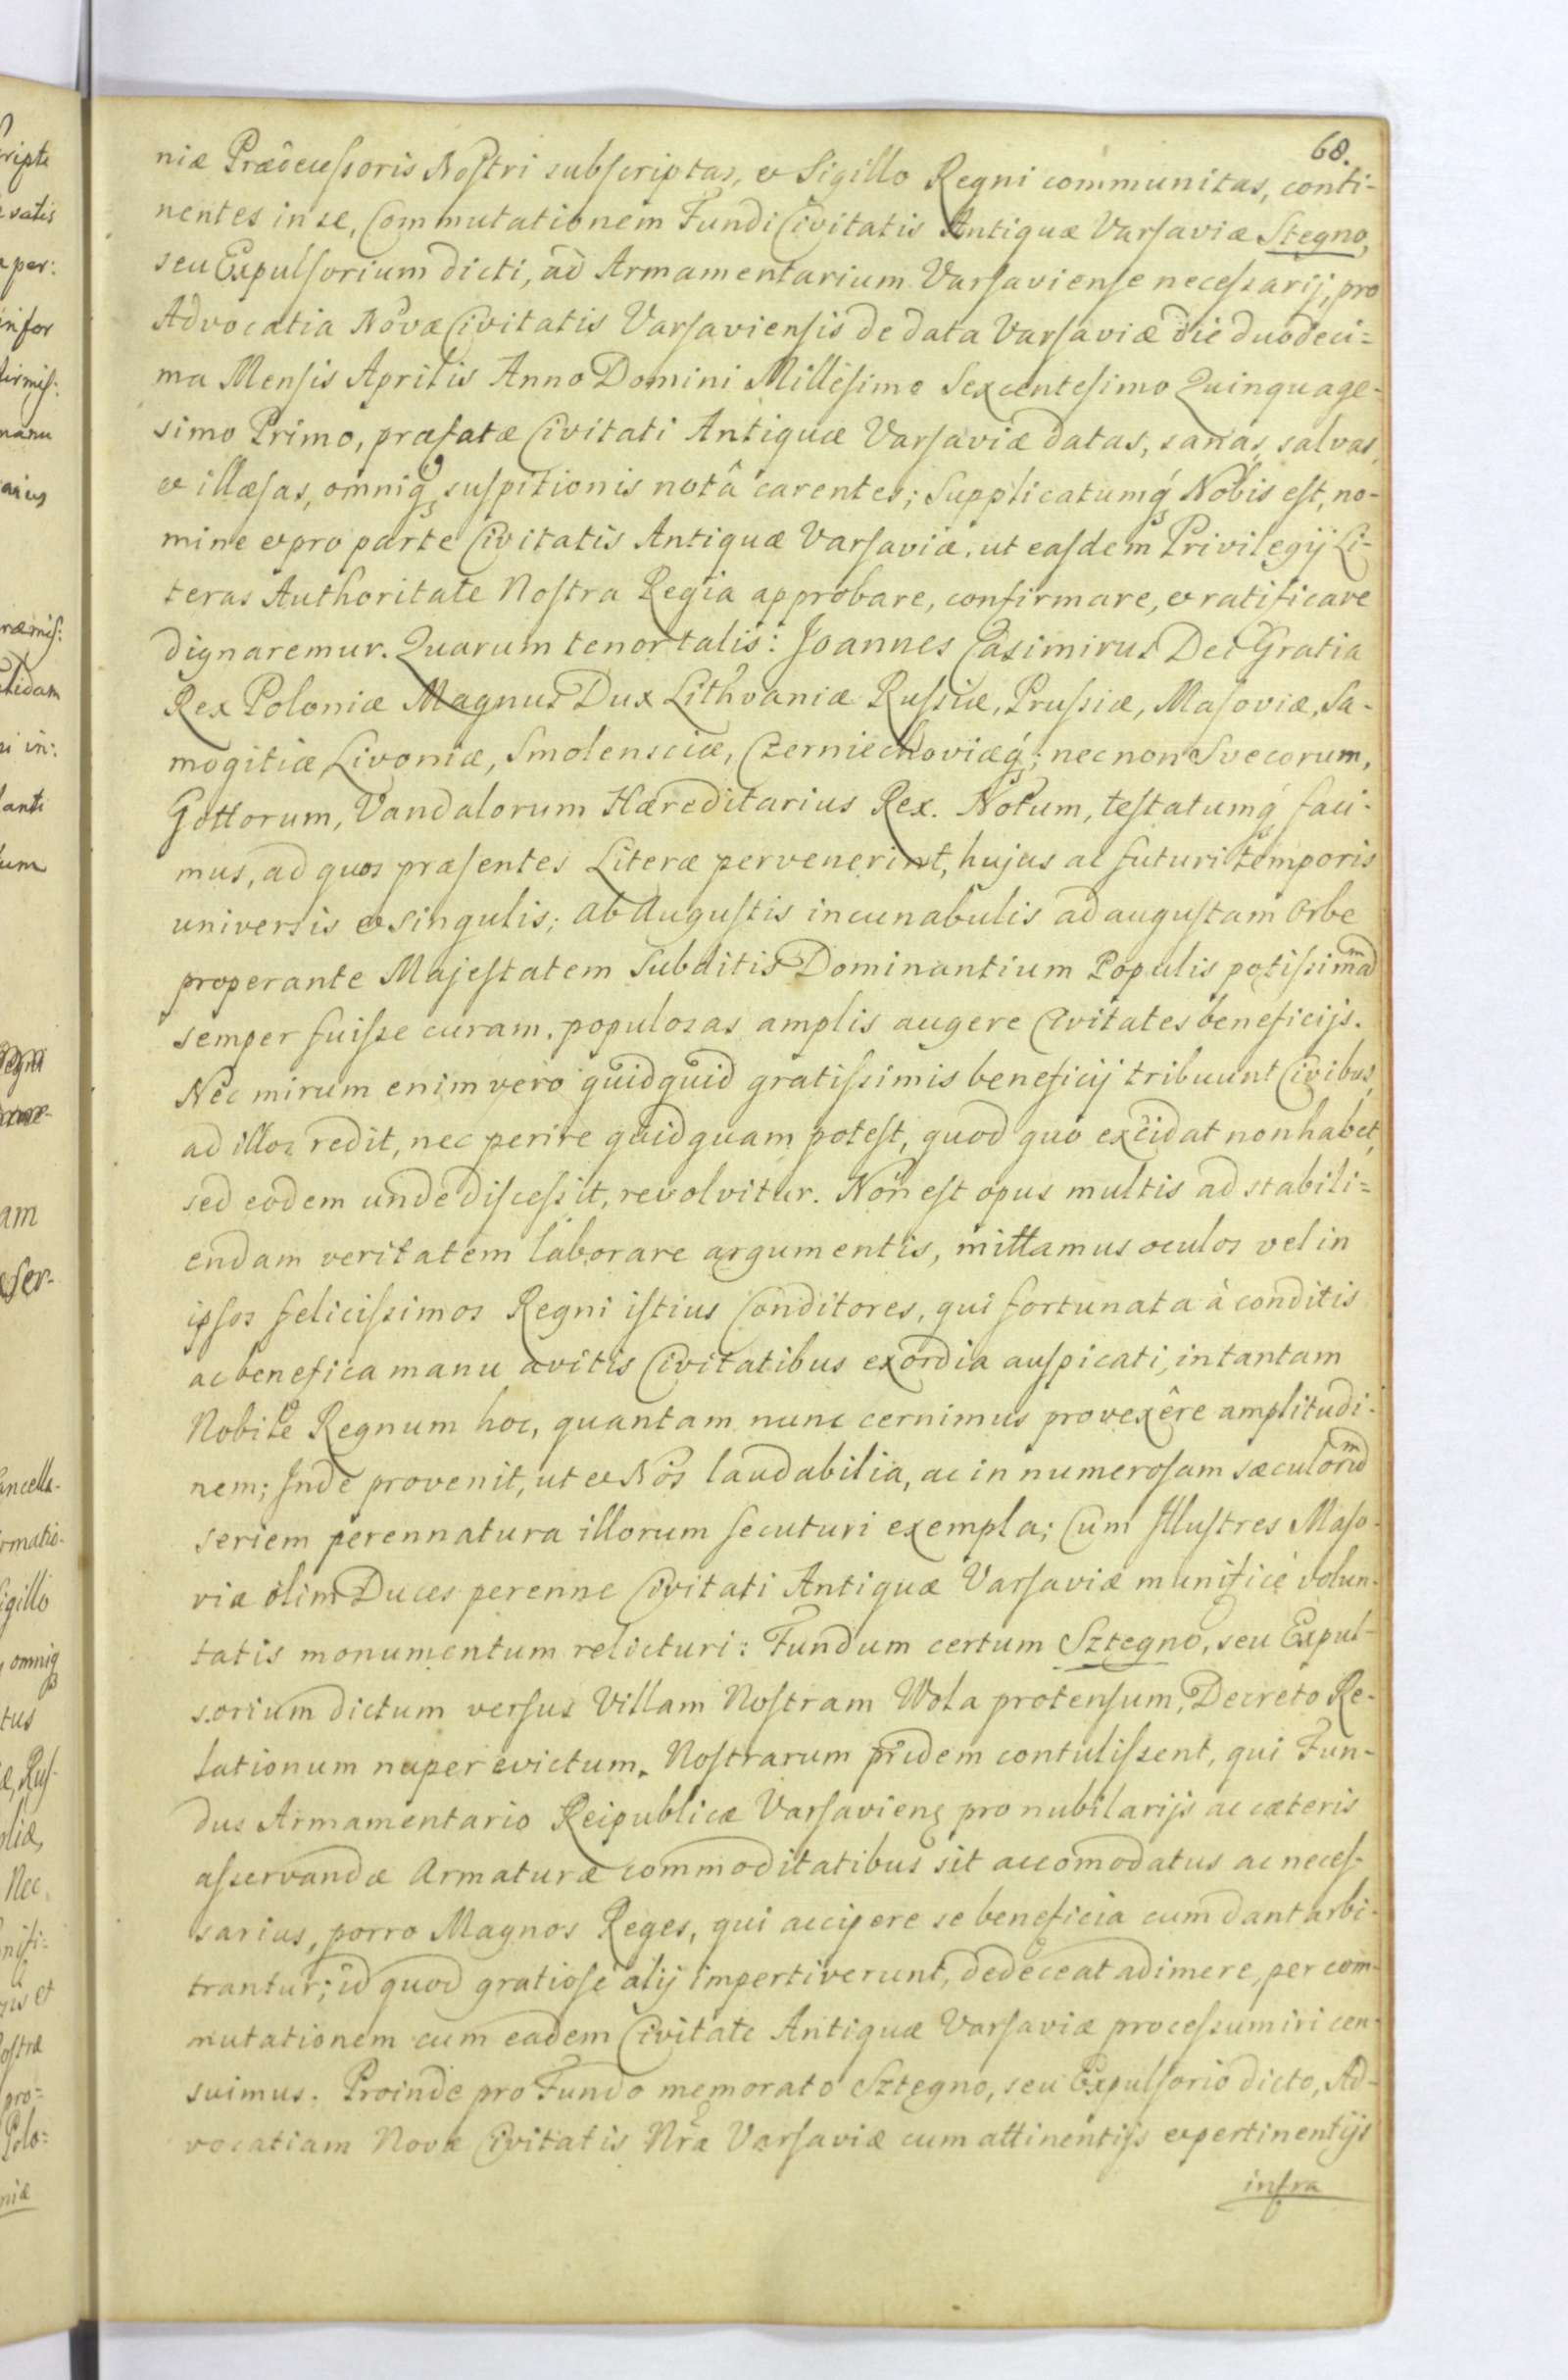 68.
niæ Prædecessoris Nostri subscriptas, et Sigillo Regni communitas, conti-
nentes in se, Commutationem Fundi Civitatis Antiquæ Varsaviæ Stegno,
seu Expulsorium dicti, ad Armamentarium Varsaviense necessarij, pro
Advocatia Novæ Civitatis Varsaviensis de data Varsaviæ die duodeci=
ma Mensis Aprilis Anno Domini Millesimo Sexcentesimo Quinquage-
simo Primo, præfatæ Civitati Antiquæ Varsaviæ datas, sanas, salvas,
et illæsas, omniq́ suspitionis notâ carentes; Supplicatumq́ Nobis est, no-
mine et pro parte Civitatis Antiquæ Varsaviæ, ut easdem Privilegij Li-
teras Authoritate Nostra Regia approbare, confirmare, et ratificare
dignaremur. Quarum tenor talis: Joannes Casimirus Dei Gratia
Rex Poloniæ Magnus Dux Lithvaniæ Russiæ, Prussiæ, Masoviæ, Sa-
mogitiæ, Livoniæ, Smolensciæ, Czerniechoviæq́; nec non Svecorum,
Gottorum, Vandalorum Hæreditarius Rex. Notum, testatumq́ faci-
mus, ad quos præsentes Literæ pervenerint, hujus ac futuri temporis
universis et singulis; ab Augustis incunabulis ad augustam Orbe
properante Majestatem Subditis Dominantium Populis potissimam
semper fuisse curam, populosas amplis augere Civitates beneficijs.
Nec mirum enim vero quidquid gratissimis beneficij tribuunt Civibus,
ad illos redit, nec perire quidquam potest, quod quo excidat non habet,
sed eodem unde discessit, revolvitur. Non est opus multis ad stabili=
endam veritatem laborare argumentis, mittamus oculos vel in
ipsos felicissimos Regni istius Conditores, qui fortunata à conditis
ac benefica manu avitis Civitatibus exordia auspicati, in tantam
Nobile Regnum hoc, quantam nunc cernimus provexêre amplitudi-
nem; Inde provenit, ut et Nos laudabilia, ac in numerosam sæculorum
seriem perennatura illorum secuturi exempla; Cum Illustres Maso-
viæ olim Duces perenne Civitati Antiquæ Varsaviæ munificè volun-
tatis monumentum relicturi: Fundum certum Sztegno, seu Expul-
sorium dictum versus Villam Nostram Wola protensum, Decreto Re-
lationum nuper evictum. Nostrarum pridem contulissent, qui Fun-
dus Armamentario Reipublicæ Varsavienς pro nubilarijs ac cæteris
asservandæ Armaturæ commoditatibus sit accomodatus ac neces-
sarius, porro Magnos Reges, qui accipere se beneficia cum dant arbi-
trantur; id quod gratiose alij impertiverunt, dedeceat adimere, per com-
mutationem cum eadem Civitate Antiquæ Varsaviæ processum iri cen-
suimus. Proinde pro Fundo memorato Sztegno, seu Expulsorio dicto, Ad-
vocatiam Novæ Civitatis Nrã Varsaviæ cum attinentijs et pertinentijs
infra